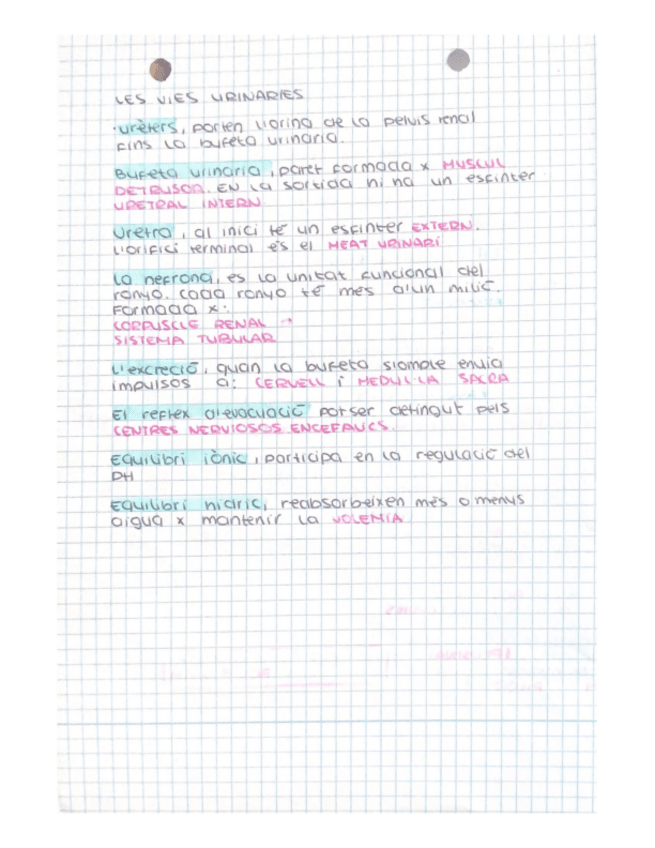 LES VIES URINARIES
·urèters, porten l'orina de la pelvis renal
fins la bufeta urinaria.
Bufeta urinaria, paret formada x MUSCUL
DETRUSOR. EN la sortida hi ha un esfinter
URETRAL INTERN
Uretra, al inici té un esfinter EXTERN.
L'orifici terminal és el MEAT URINARI
La nefrona, es la unitat funcional del
ronyo. cada ronyo té més d'un milió.
Formada x:
CORPUSCLE RENAL
SISTEMA TUBULAR
L'excreció, quan la bufeta s'omple envia
impulsos a: CERVELL i MEDUL·LA SACRA
El reflex d'evacuació pot ser detingut pels
CENTRES NERVIOSOS ENCEFALICS.
Equilibri iònic, participa en la regulació del
PH
Equilibri hidric, reabsorbeixen més o menys
aigua x mantenir la VOLEMIA